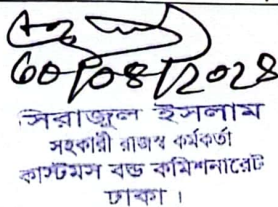 সিরাজুল ইসলাম
সহকারী রাজস্ব কর্মকর্তা
কাস্টমস বন্ড কমিশনারেট
ঢাকা।